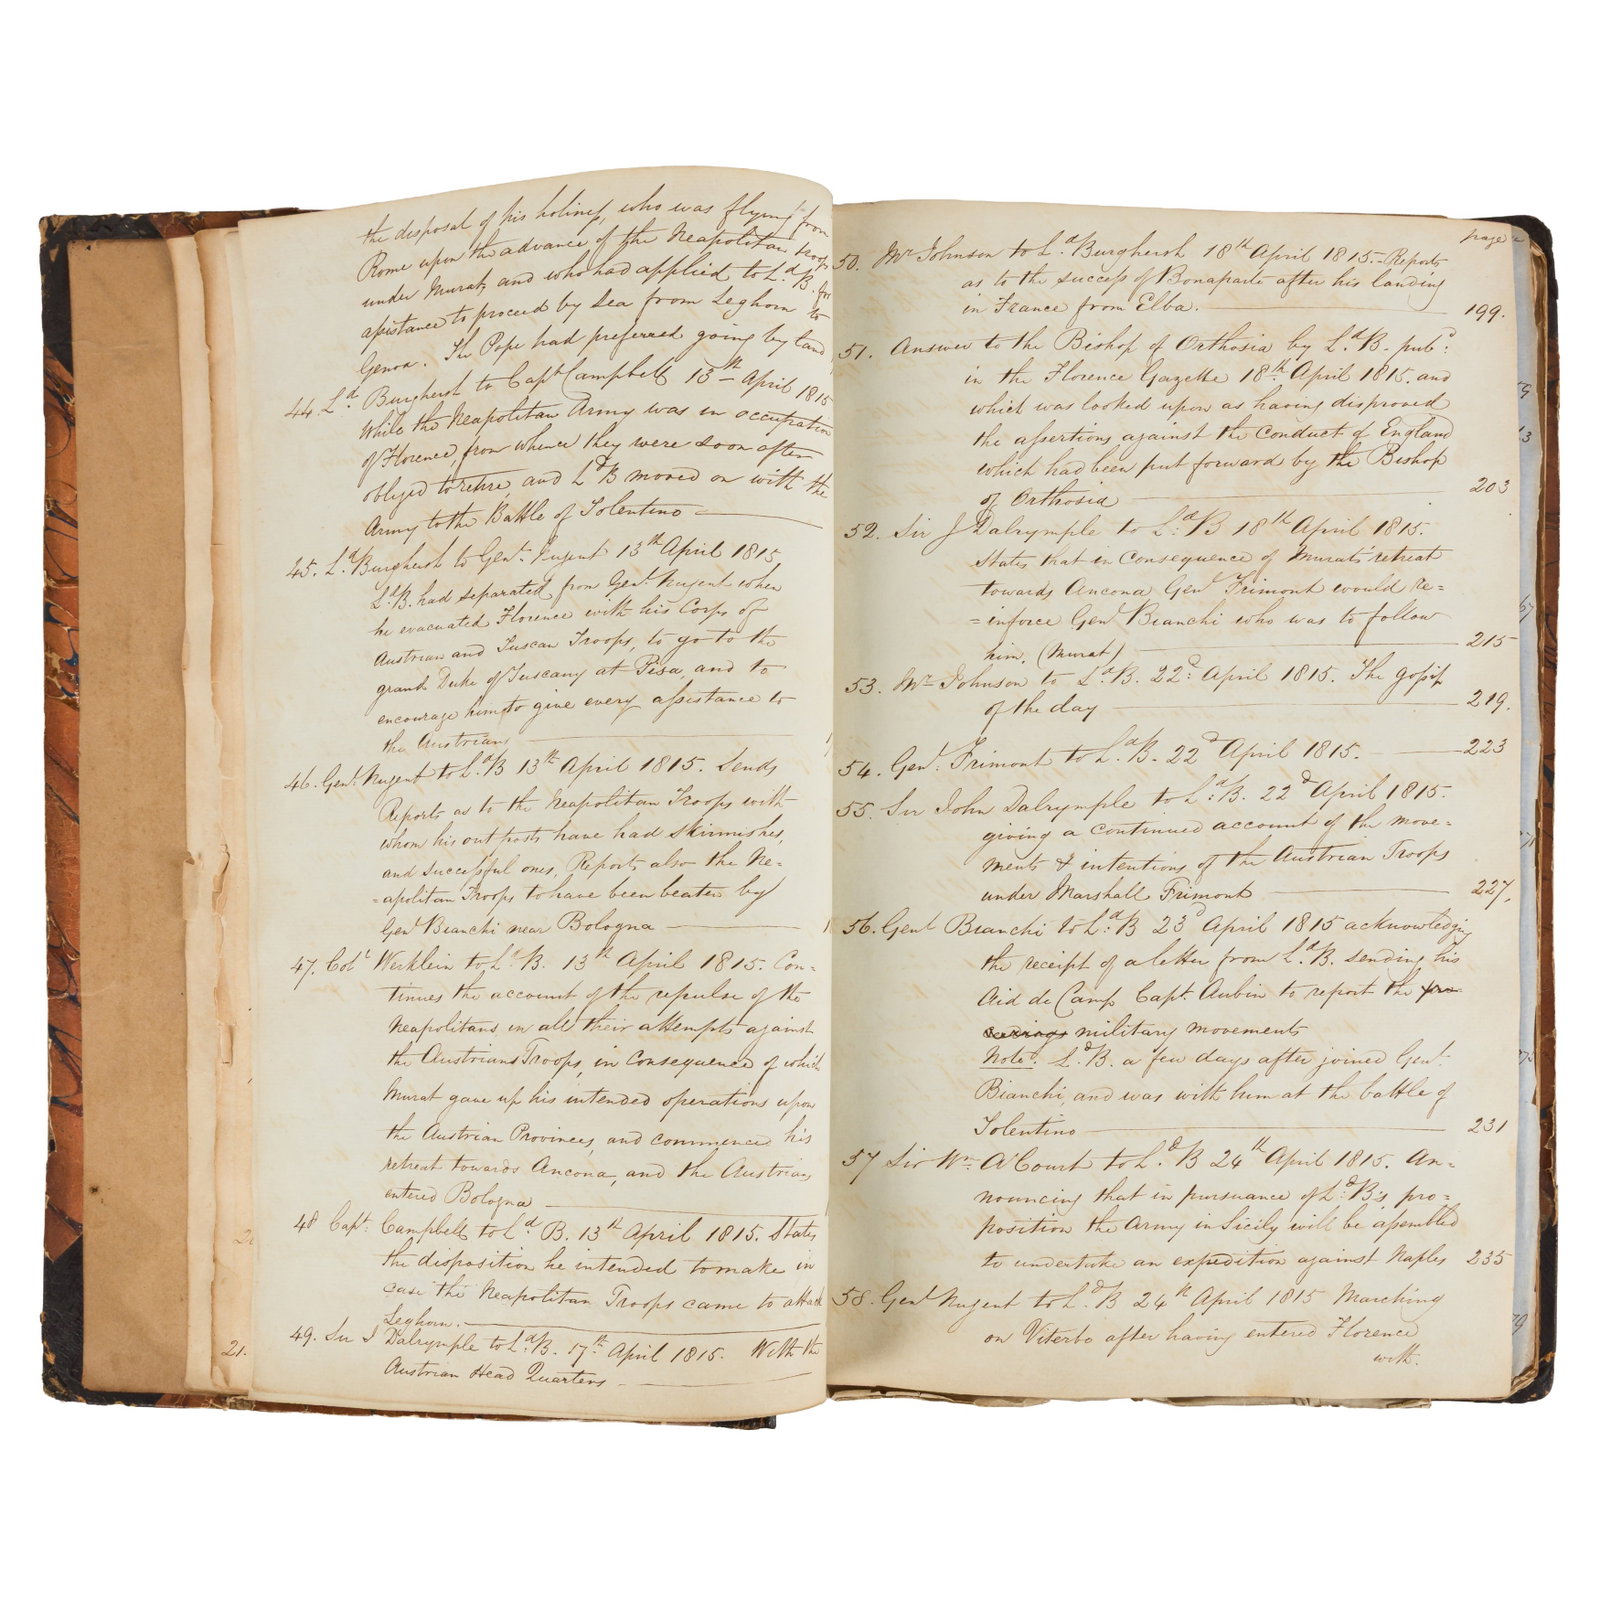 the disposal of his holiness, who was flying from
Rome upon the advance of the Neapolitan troops
under Murat, and who had applied to Ld. B. for
assistance to proceed by Sea from Leghorn to
Genoa. The Pope had preferred going by land
44. Ld. Burghersh to Capt Campbell 13th April 1815
While the Neapolitan Army was in occupation
of Florence, from whence they were soon after
obliged to retire, and Ld B moved on with the
Army to the Battle of Tolentino
45. Ld. Burghersh to Genl. Nugent 13th April 1815
Ld. B. had separated from Genl. Nugent when
he evacuated Florence with his Corps of
Austrian and Tuscan Troops, to go to the
grand Duke of Tuscany at Pisa, and to
encourage him to give every assistance to
the Austrians
46. Genl. Nugent to Ld. B 13th April 1815. Sends
Reports as to the Neapolitan Troops with
whom his out posts have had skirmishes,
and successful ones, Reports also the Ne=
=apolitan Troops to have been beaten by
Genl Bianchi near Bologna
47. Coll Werklein to Ld. B. 13th April 1815. Con=
tinues the account of the repulse of the
Neapolitans in all their attempts against
the Austrians Troops, in consequence of which
Murat gave up his intended operations upon
the Austrian Provinces, and commenced his
retreat towards Ancona, and the Austrians
entered Bologna
48 Capt. Campbell to Ld. B. 13th April 1815. States
the disposition he intended to make in
case the Neapolitan Troops came to attack
Leghorn.
49. Sir J Dalrymple to Ld. B. 17th April 1815. With the
Austrian Head Quarters
21.
page
50. Mr Johnson to Ld. Burghersh 18th April 1815. - Reports
as to the success of Bonaparte after his landing
in France from Elba. 199.
51. Answer to the Bishop of Orthosia by Ld. B. pubd:
in the Florence Gazette 18th April 1815. and
which was looked upon as having disproved
the assertions against the conduct of England
which had been put forward by the Bishop
of Orthosia 203
52. Sir J Dalrymple to Ld. B 18th April 1815.
States that in consequence of Murat's retreat
towards Ancona Genl Frimont would re=
=inforce Genl Bianchi who was to follow
him. (Murat) 215
53. Mr Johnson to Ld. B. 22d April 1815. The gossip
of the day 219.
54. Genl. Frimont to Ld. B. 22d April 1815. 223
55. Sir John Dalrymple to Ld. B. 22d April 1815.
giving a continued account of the move=
ments & intentions of the Austrian Troops
under Marshall Frimont 227.
56. Genl Bianchi to Ld. B 23d April 1815 acknowledging
the receipt of a letter from Ld. B. sending his
Aid de Camp Capt. Aubin to report the pro=
ceedings military movements
Note: Ld. B. a few days after joined Genl.
Bianchi, and was with him at the battle of
Tolentino 231
57 Sir Wm. A'Court to Ld. B 24th April 1815. An=
nouncing that in pursuance of Ld. B's pro=
position the Army in Sicily will be assembled
to undertake an expedition against Naples 235
58. Genl Nugent to Ld. B 24th April 1815 Marching
on Viterbo after having entered Florence
with.